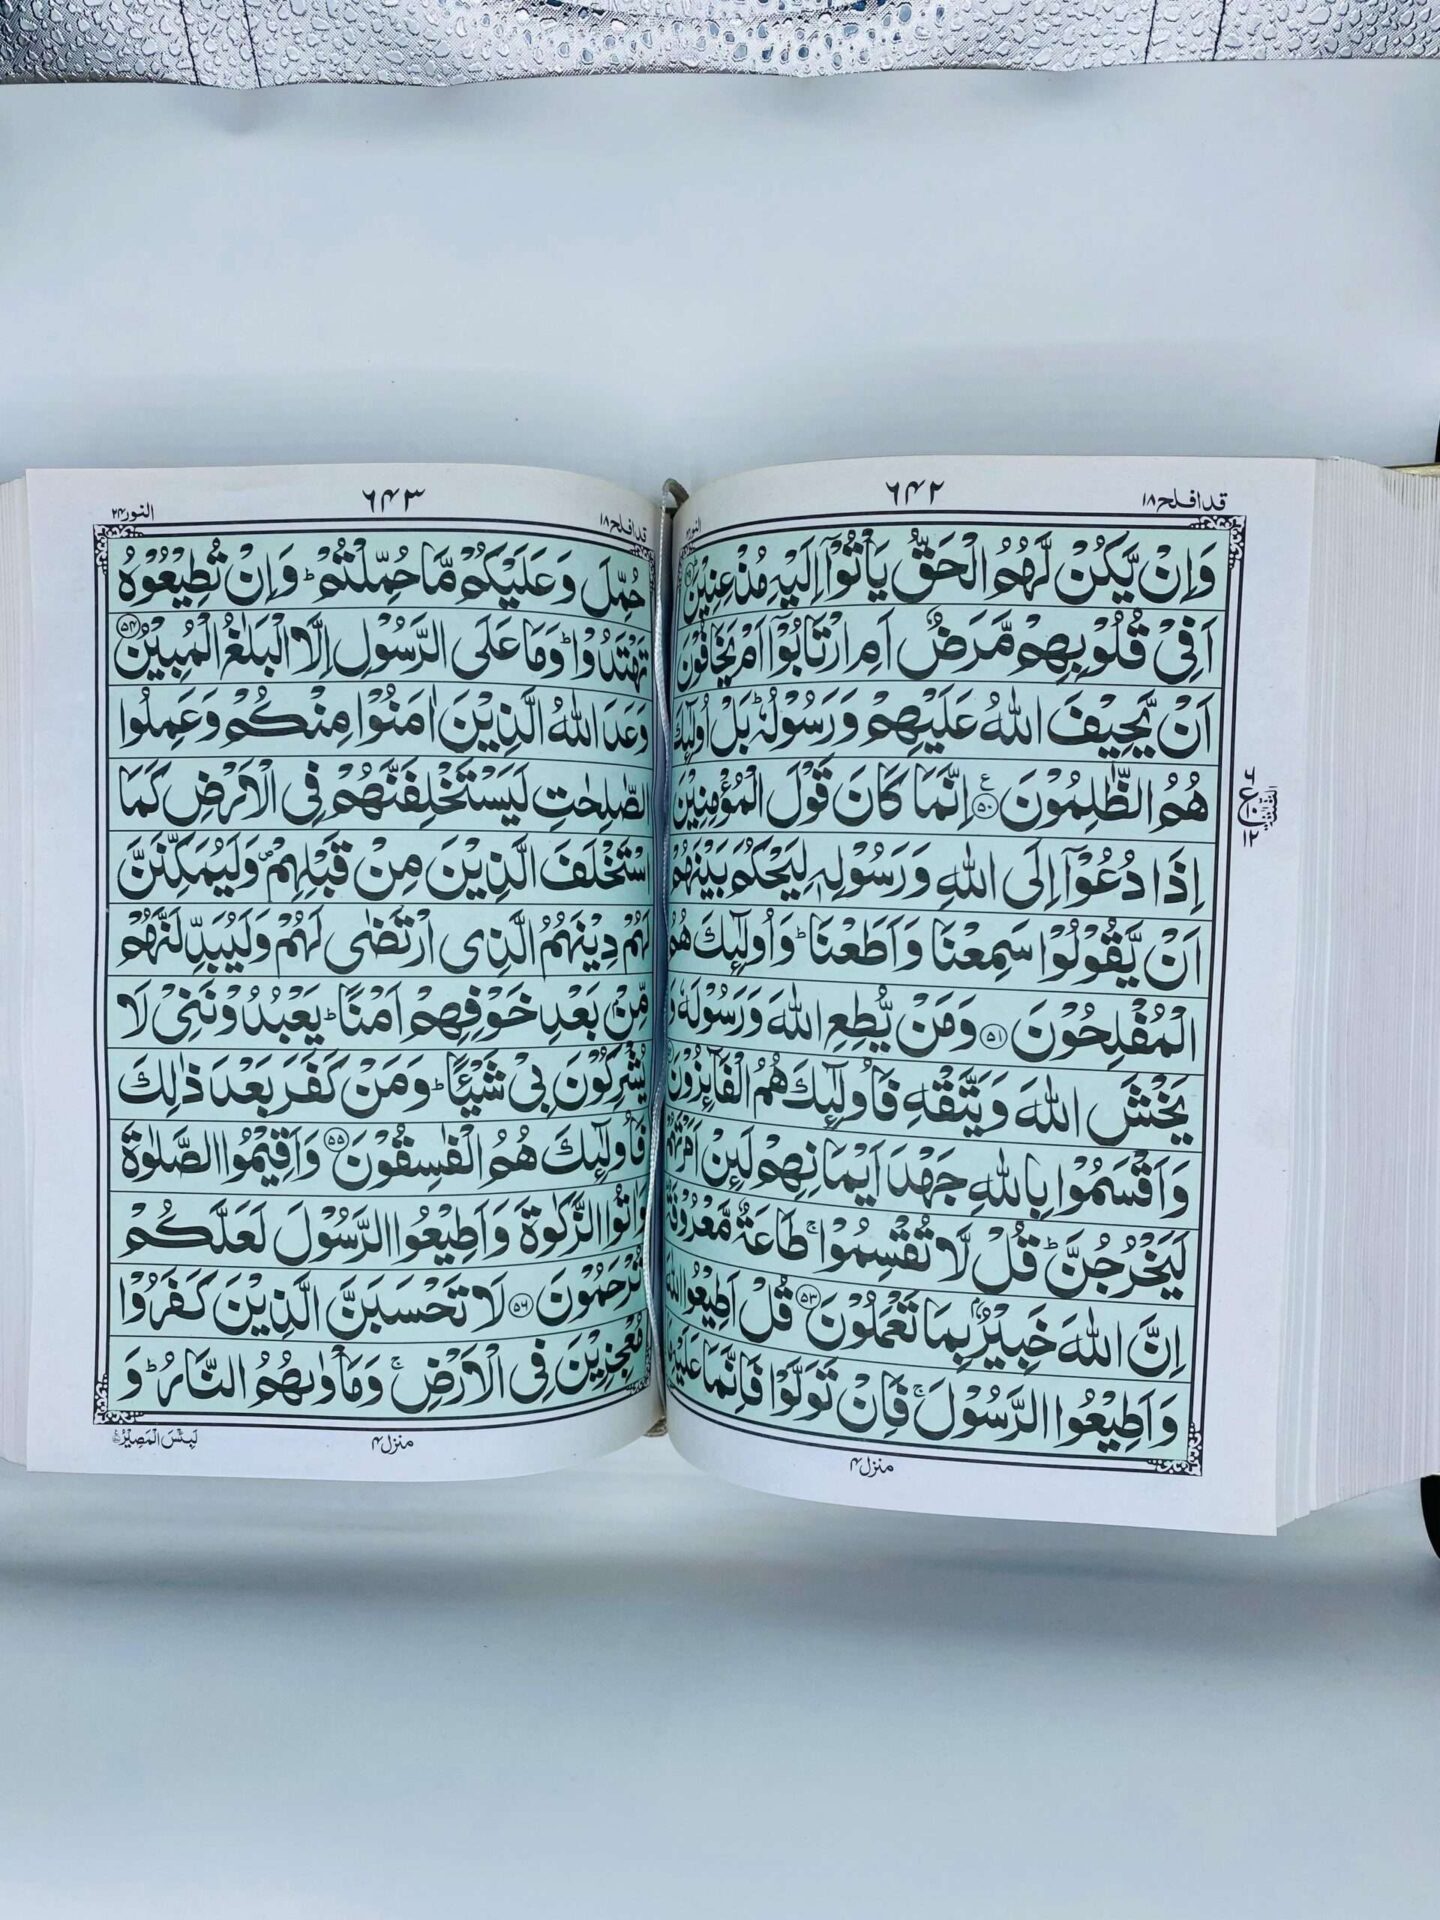 قد افلح ١٨
٦٤٢
النور ٢٤
وَاِنْ يَّكُنْ لَّهُمُ الْحَقُّ يَاْتُوْٓا اِلَيْهِ مُذْعِنِيْنَ
اَفِيْ قُلُوْبِهِمْ مَّرَضٌ اَمِ ارْتَابُوْٓا اَمْ يَخَافُوْنَ
اَنْ يَّحِيْفَ اللّٰهُ عَلَيْهِمْ وَرَسُوْلُهٗ ؕ بَلْ اُولٰٓئِكَ
هُمُ الظّٰلِمُوْنَ ﴿٥٠﴾ اِنَّمَا كَانَ قَوْلَ الْمُؤْمِنِيْنَ
اِذَا دُعُوْٓا اِلَى اللّٰهِ وَرَسُوْلِهٖ لِيَحْكُمَ بَيْنَهُمْ
اَنْ يَّقُوْلُوْا سَمِعْنَا وَاَطَعْنَا ؕ وَاُولٰٓئِكَ هُمُ
الْمُفْلِحُوْنَ ﴿٥١﴾ وَمَنْ يُّطِعِ اللّٰهَ وَرَسُوْلَهٗ وَ
يَخْشَ اللّٰهَ وَيَتَّقْهِ فَاُولٰٓئِكَ هُمُ الْفَآئِزُوْنَ
وَاَقْسَمُوْا بِاللّٰهِ جَهْدَ اَيْمَانِهِمْ لَئِنْ اَمَرْتَهُمْ
لَيَخْرُجُنَّ ؕ قُلْ لَّا تُقْسِمُوْا ۚ طَاعَةٌ مَّعْرُوْفَةٌ
اِنَّ اللّٰهَ خَبِيْرٌۢ بِمَا تَعْمَلُوْنَ ﴿٥٣﴾ قُلْ اَطِيْعُوا اللّٰهَ
وَاَطِيْعُوا الرَّسُوْلَ ۚ فَاِنْ تَوَلَّوْا فَاِنَّمَا عَلَيْهِ
منزل ٤
قد افلح ١٨
٦٤٣
النور ٢٤
حُمِّلَ وَعَلَيْكُمْ مَّا حُمِّلْتُمْ ؕ وَاِنْ تُطِيْعُوْهُ
تَهْتَدُوْا ؕ وَمَا عَلَى الرَّسُوْلِ اِلَّا الْبَلٰغُ الْمُبِيْنُ ﴿٥٤﴾
وَعَدَ اللّٰهُ الَّذِيْنَ اٰمَنُوْا مِنْكُمْ وَعَمِلُوا
الصّٰلِحٰتِ لَيَسْتَخْلِفَنَّهُمْ فِى الْاَرْضِ كَمَا
اسْتَخْلَفَ الَّذِيْنَ مِنْ قَبْلِهِمْ ۪ وَلَيُمَكِّنَنَّ
لَهُمْ دِيْنَهُمُ الَّذِى ارْتَضٰى لَهُمْ وَلَيُبَدِّلَنَّهُمْ
مِّنْۢ بَعْدِ خَوْفِهِمْ اَمْنًا ؕ يَعْبُدُوْنَنِيْ لَا
يُشْرِكُوْنَ بِيْ شَيْئًا ؕ وَمَنْ كَفَرَ بَعْدَ ذٰلِكَ
فَاُولٰٓئِكَ هُمُ الْفٰسِقُوْنَ ﴿٥٥﴾ وَاَقِيْمُوا الصَّلٰوةَ
وَاٰتُوا الزَّكٰوةَ وَاَطِيْعُوا الرَّسُوْلَ لَعَلَّكُمْ
تُرْحَمُوْنَ ﴿٥٦﴾ لَا تَحْسَبَنَّ الَّذِيْنَ كَفَرُوْا
مُعْجِزِيْنَ فِى الْاَرْضِ ۚ وَمَاْوٰىهُمُ النَّارُ ؕ وَ
منزل ٤
لَبِئْسَ الْمَصِيْرُ